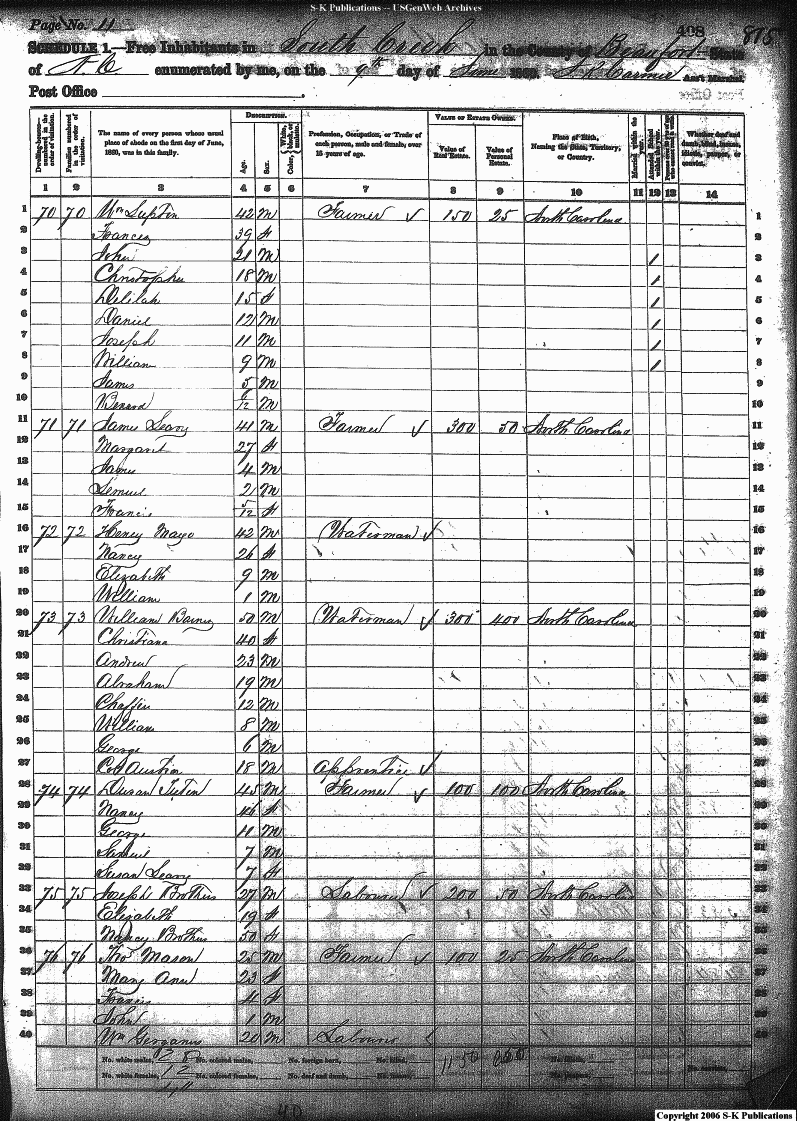 S-K Publications -- USGenWeb Archives
Page No. 11
408 815
SCHEDULE 1.—Free Inhabitants in South Creek in the County of Beaufort State
of N. C enumerated by me, on the 9th day of June 1860. Ass't Marshal.
Post Office
DESCRIPTION. VALUE OF ESTATE OWNED.
Dwelling-houses—numbered in the order of visitation. Families numbered in the order of visitation. The name of every person whose usual place of abode on the first day of June, 1860, was in this family. Age. Sex. Color, White, black, or mulatto. Profession, Occupation, or Trade of each person, male and female, over 15 years of age. Value of Real Estate. Value of Personal Estate. Place of Birth, Naming the State, Territory, or Country. Married within the year. Attended School within the year. Whether deaf and dumb, blind, insane, idiotic, pauper, or convict.
1 2 3 4 5 6 7 8 9 10 11 12 13 14
1 70 70 Wm 42 M Farmer 150 25 North Carolina 1
2 Frances 39 f 2
3 John 21 M / 3
4 Christopher 18 M / 4
5 Delilah 15 f / 5
6 Daniel 12 M / 6
7 Joseph 11 M / 7
8 William 9 M / 8
9 James 5 M 9
10 M 10
11 71 71 James Leary 41 M Farmer 300 50 North Carolina 11
12 Margaret 27 f 12
13 James 4 M 13
14 Lemuel 2 M 14
15 Francis 5/12 f 15
16 72 72 Henry Mayo 42 M Waterman 16
17 Nancy 26 f 17
18 Elizabeth 9 M 18
19 William 1 M 19
20 73 73 William 50 M Waterman 300 400 North Carolina 20
21 Christiana 40 f 21
22 Andrew 23 M 22
23 Abraham 19 M 23
24 12 M 24
25 William 8 M 25
26 George 6 M 26
27 Austin 18 M Apprentice 27
28 74 74 45 M Farmer 100 100 North Carolina 28
29 Nancy 46 f 29
30 George 11 M 30
31 Samuel 7 M 31
32 Susan Leary 7 f 32
33 75 75 Joseph Brothers 27 M Labourer 200 50 North Carolina 33
34 Elizabeth 19 f 34
35 Nancy Brothers 50 f 35
36 76 76 Thos Mason 25 M Farmer 100 25 North Carolina 36
37 Mary Ann 23 f 37
38 Francis 4 f 38
39 John 1 M 39
40 Wm Gerganus 20 M Labourer 40
No. white males, 28 No. colored males, No. foreign born, No. blind, 1150
No. white females, 12 No. colored females, No. deaf and dumb, No. insane,
40
Copyright 2006 S-K Publications